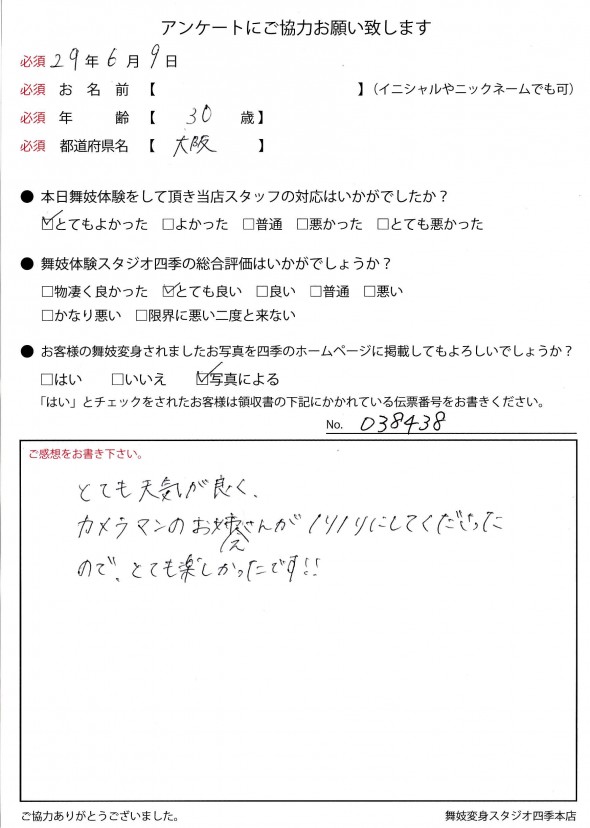 アンケートにご協力お願い致します
必須 29年6月9日
必須 お名前【 】(イニシャルやニックネームでも可)
必須 年齢【 30 歳】
必須 都道府県名【 大阪 】
● 本日舞妓体験をして頂き当店スタッフの対応はいかがでしたか？
☑とてもよかった □よかった □普通 □悪かった □とても悪かった
● 舞妓体験スタジオ四季の総合評価はいかがでしょうか？
□物凄く良かった ☑とても良い □良い □普通 □悪い
□かなり悪い □限界に悪い二度と来ない
● お客様の舞妓変身されましたお写真を四季のホームページに掲載してもよろしいでしょうか？
□はい □いいえ ☑写真による
「はい」とチェックをされたお客様は領収書の下記にかかれている伝票番号をお書きください。
No. 038438
ご感想をお書き下さい。
とても天気が良く、
カメラマンのお姉さんがノリノリにしてくださった
ので、とても楽しかったです!!
ご協力ありがとうございました。
舞妓変身スタジオ四季本店